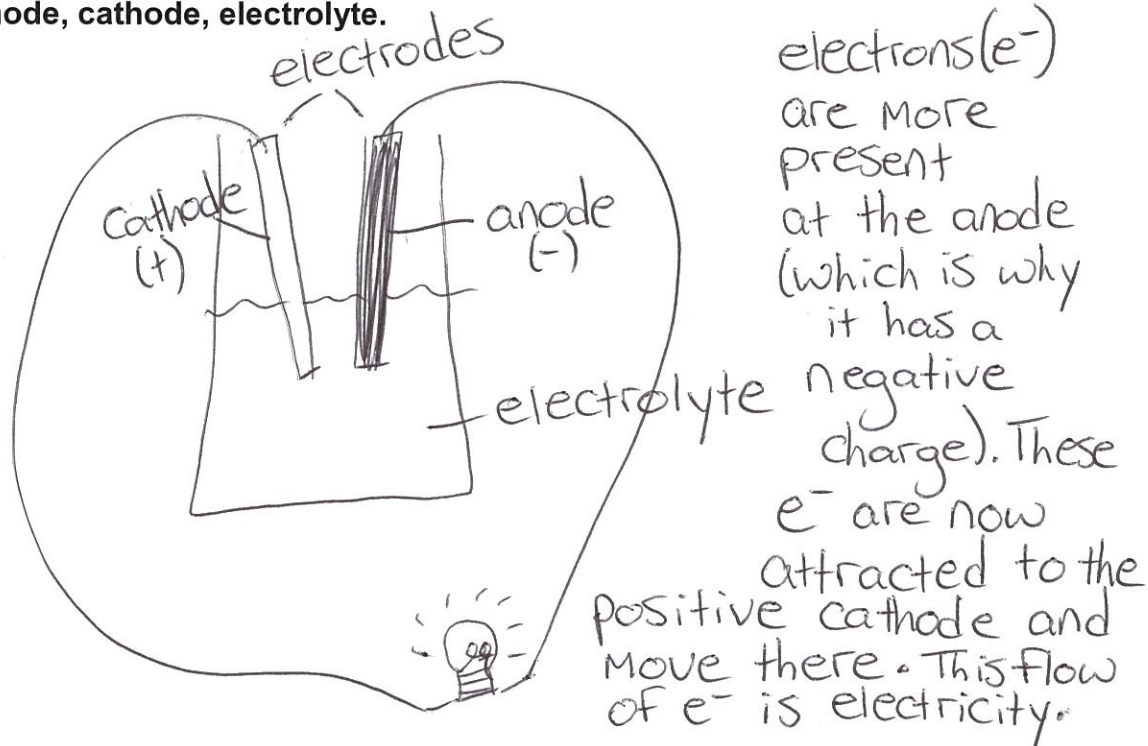 ode, cathode, electrolyte.
electrodes
cathode
(+)
anode
(-)
electrolyte
electrons(e⁻)
are more
present
at the anode
(which is why
it has a
negative
charge). These
e⁻ are now
attracted to the
positive cathode and
move there. This flow
of e⁻ is electricity.